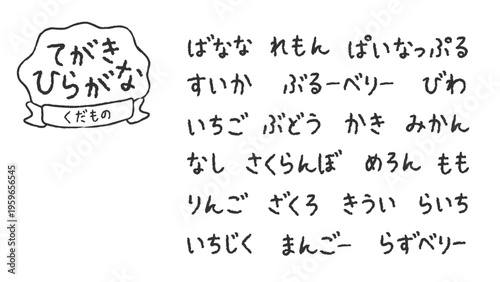 てがき
ひらがな
くだもの
ばなな れもん ぱいなっぷる
すいか ぶるーべりー びわ
いちご ぶどう かき みかん
なし さくらんぼ めろん もも
りんご ざくろ きうい らいち
いちじく まんごー らずべりー
Adobe Stock | #1959656545